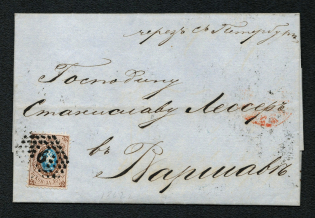 чрезъ С Петербургъ
Господину
Станиславу Лессеръ
въ
Варшавѣ